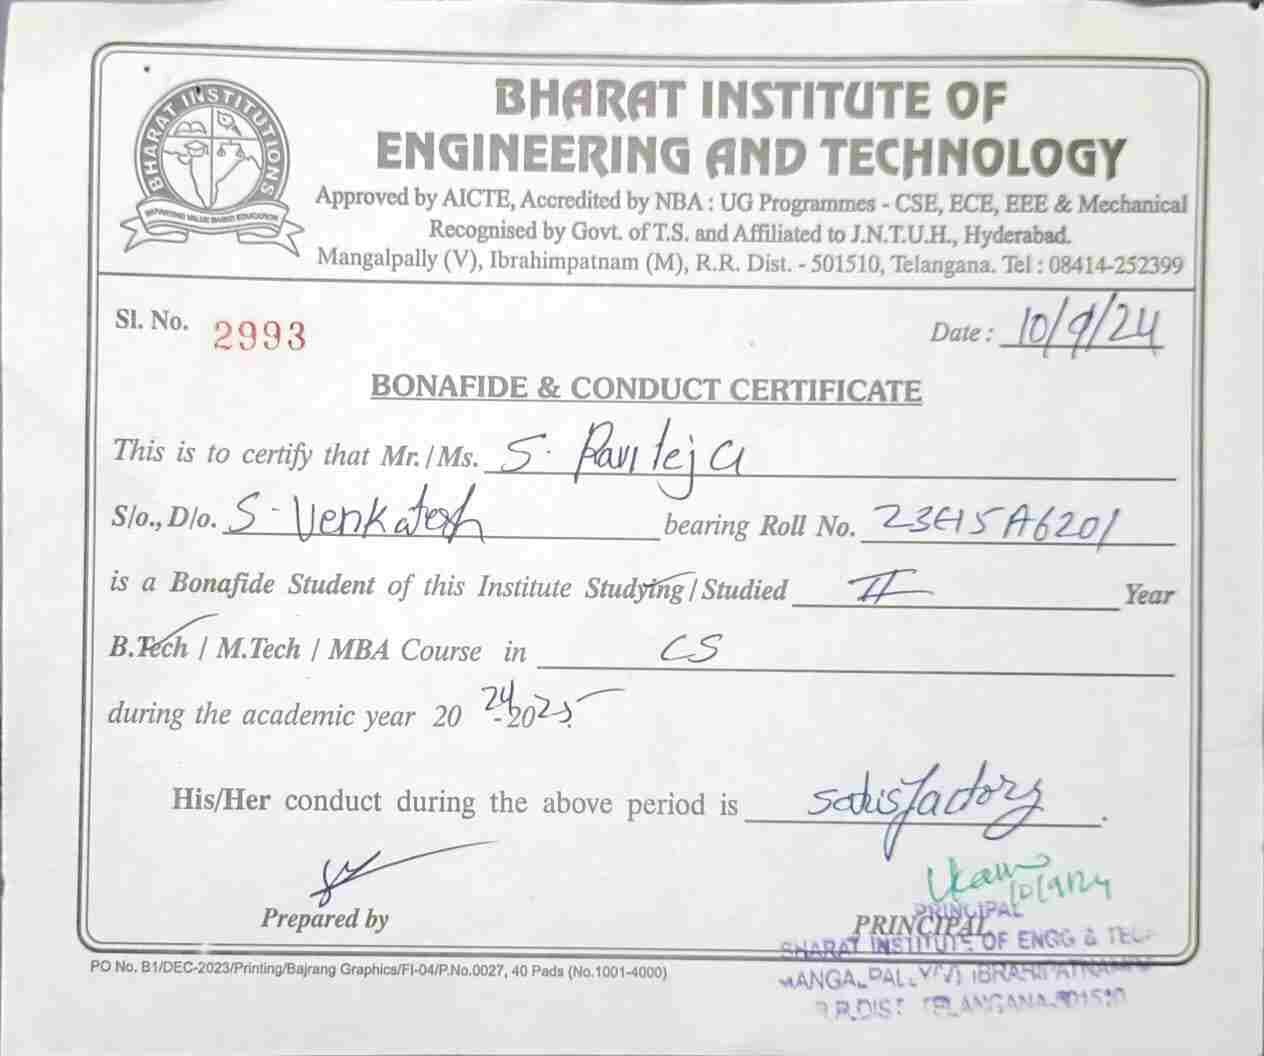 BHARAT INSTITUTIONS
IMPARTING VALUE BASED EDUCATION
BHARAT INSTITUTE OF
ENGINEERING AND TECHNOLOGY
Approved by AICTE, Accredited by NBA : UG Programmes - CSE, ECE, EEE & Mechanical
Recognised by Govt. of T.S. and Affiliated to J.N.T.U.H., Hyderabad.
Mangalpally (V), Ibrahimpatnam (M), R.R. Dist. - 501510, Telangana. Tel : 08414-252399
Sl. No. 2993 Date : 10/9/24
BONAFIDE & CONDUCT CERTIFICATE
This is to certify that Mr. / Ms. S. Raviteja
S/o., D/o. S. Venkatesh bearing Roll No. 23E15A6201
is a Bonafide Student of this Institute Studying / Studied II Year
B.Tech / M.Tech / MBA Course in CS
during the academic year 20 24-2025
His/Her conduct during the above period is satisfactory.
10/9/24
Prepared by PRINCIPAL
PRINCIPAL
BHARAT INSTITUTE OF ENGG & TECH
MANGALPALLY (V) IBRAHIPATNAM
R.R.DIST TELANGANA-501510
PO No. B1/DEC-2023/Printing/Bajrang Graphics/FI-04/P.No.0027, 40 Pads (No.1001-4000)